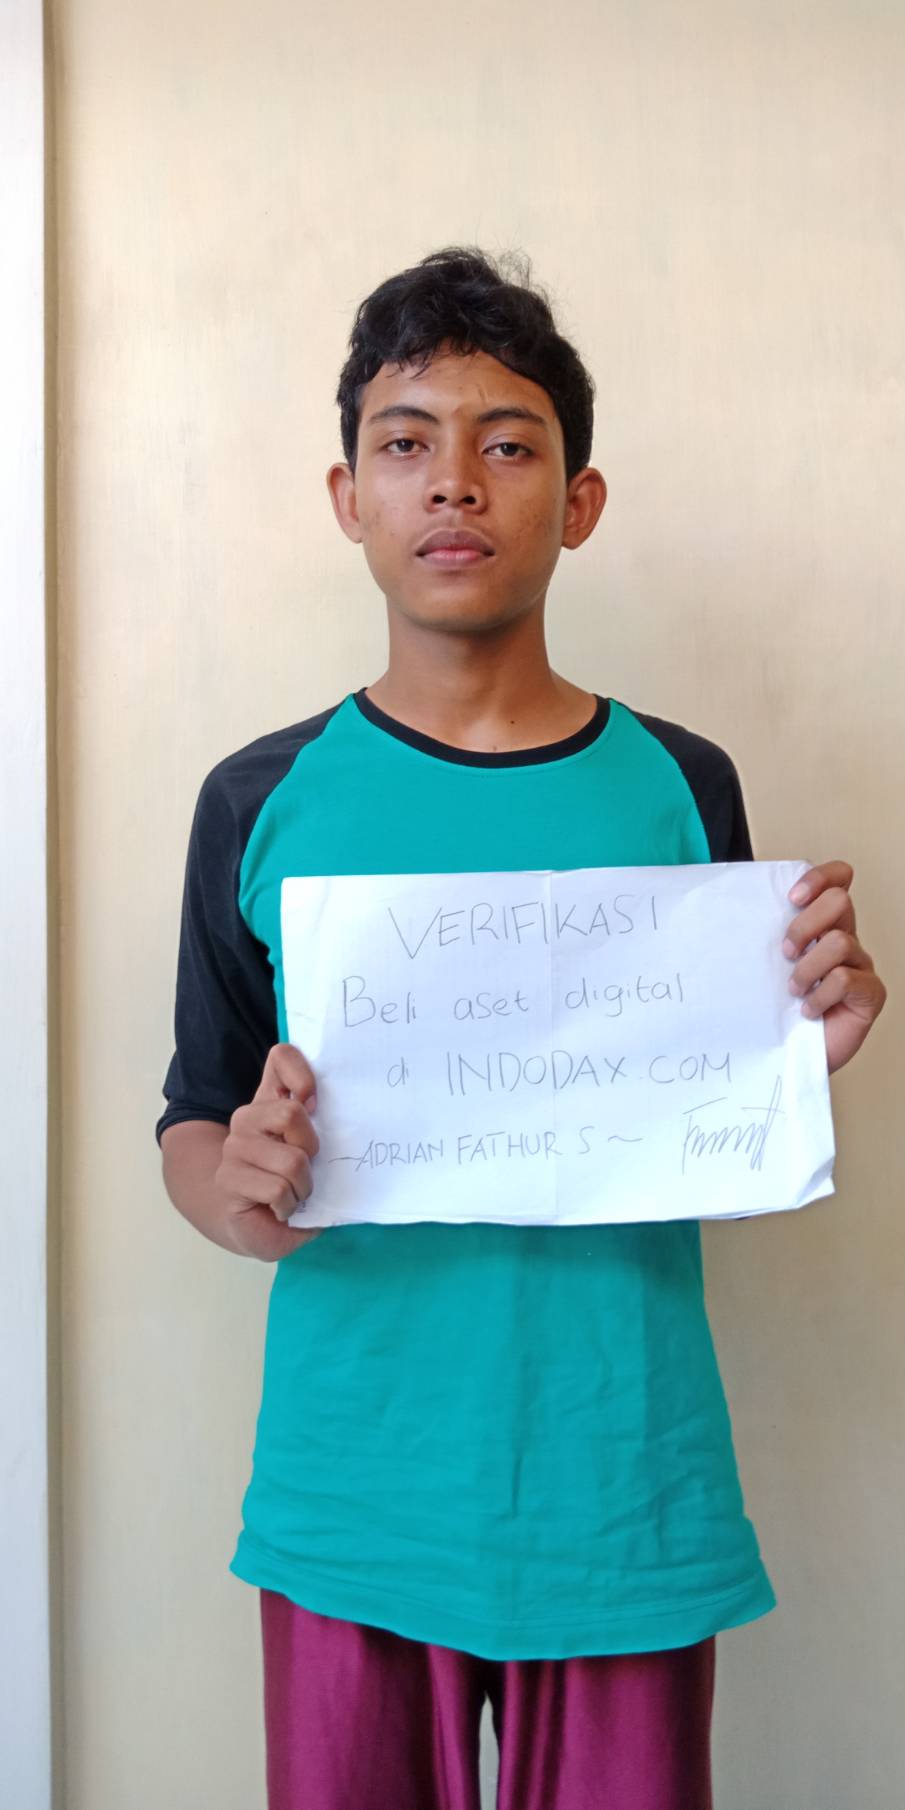 VERIFIKASI
Beli aset digital
di INDODAX.COM
~ADRIAN FATHUR S~